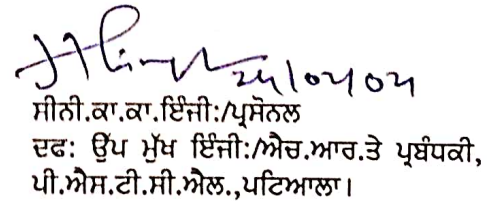 ਸੀਨੀ.ਕਾ.ਕਾ.ਇੰਜੀ:/ਪ੍ਰਸੋਨਲ
ਦਫ: ਉੱਪ ਮੁੱਖ ਇੰਜੀ:/ਐਚ.ਆਰ.ਤੇ ਪ੍ਰਬੰਧਕੀ,
ਪੀ.ਐਸ.ਟੀ.ਸੀ.ਐਲ.,ਪਟਿਆਲਾ।